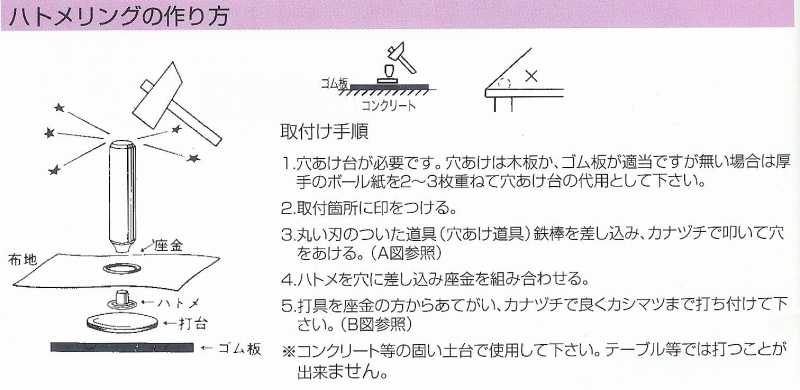 ハトメリングの作り方
ゴム板
コンクリート
×
取付け手順
1.穴あけ台が必要です。穴あけは木板か、ゴム板が適当ですが無い場合は厚
手のボール紙を2〜3枚重ねて穴あけ台の代用として下さい。
2.取付箇所に印をつける。
3.丸い刃のついた道具(穴あけ道具)鉄棒を差し込み、カナヅチで叩いて穴
をあける。(A図参照)
4.ハトメを穴に差し込み座金を組み合わせる。
5.打具を座金の方からあてがい、カナヅチで良くカシマツまで打ち付けて下
さい。(B図参照)
※コンクリート等の固い土台で使用して下さい。テーブル等では打つことが
出来ません。
座金
布地
ハトメ
打台
ゴム板